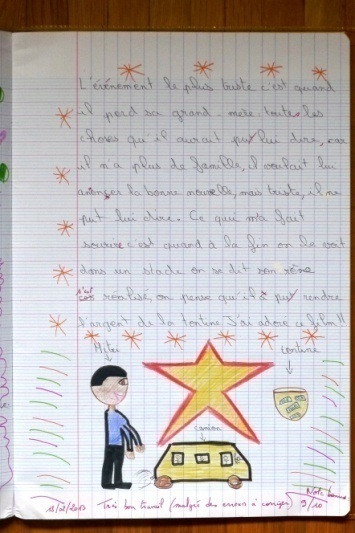 L'évènement le plus triste c'est quand
il perd sa grand-mère. toutes les
choses qu'il aurait pu lui dire, car
il n'a plus de famille, il voulait lui
annonçer la bonne nouvelle, mais triste, il ne
put lui dire. Ce qui m'a fait
sourire c'est quand à la fin on le voit
dans un stade on se dit son rêve
s'est réalisé, on pense qu'il a pu rendre
l'argent de la tontine. J'ai adoré ce film!!
tontine
camion
13/02/2013 Très bon travail (malgré des erreurs à corriger) 9/10